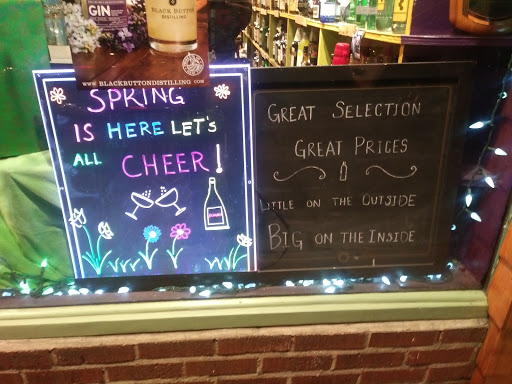 GIN
BLACK BUTTON
DISTILLING
WWW.BLACKBUTTONDISTILLING.COM
SPRING
IS HERE LET'S
ALL CHEER!
GREAT SELECTION
GREAT PRICES
LITTLE ON THE OUTSIDE
BIG ON THE INSIDE